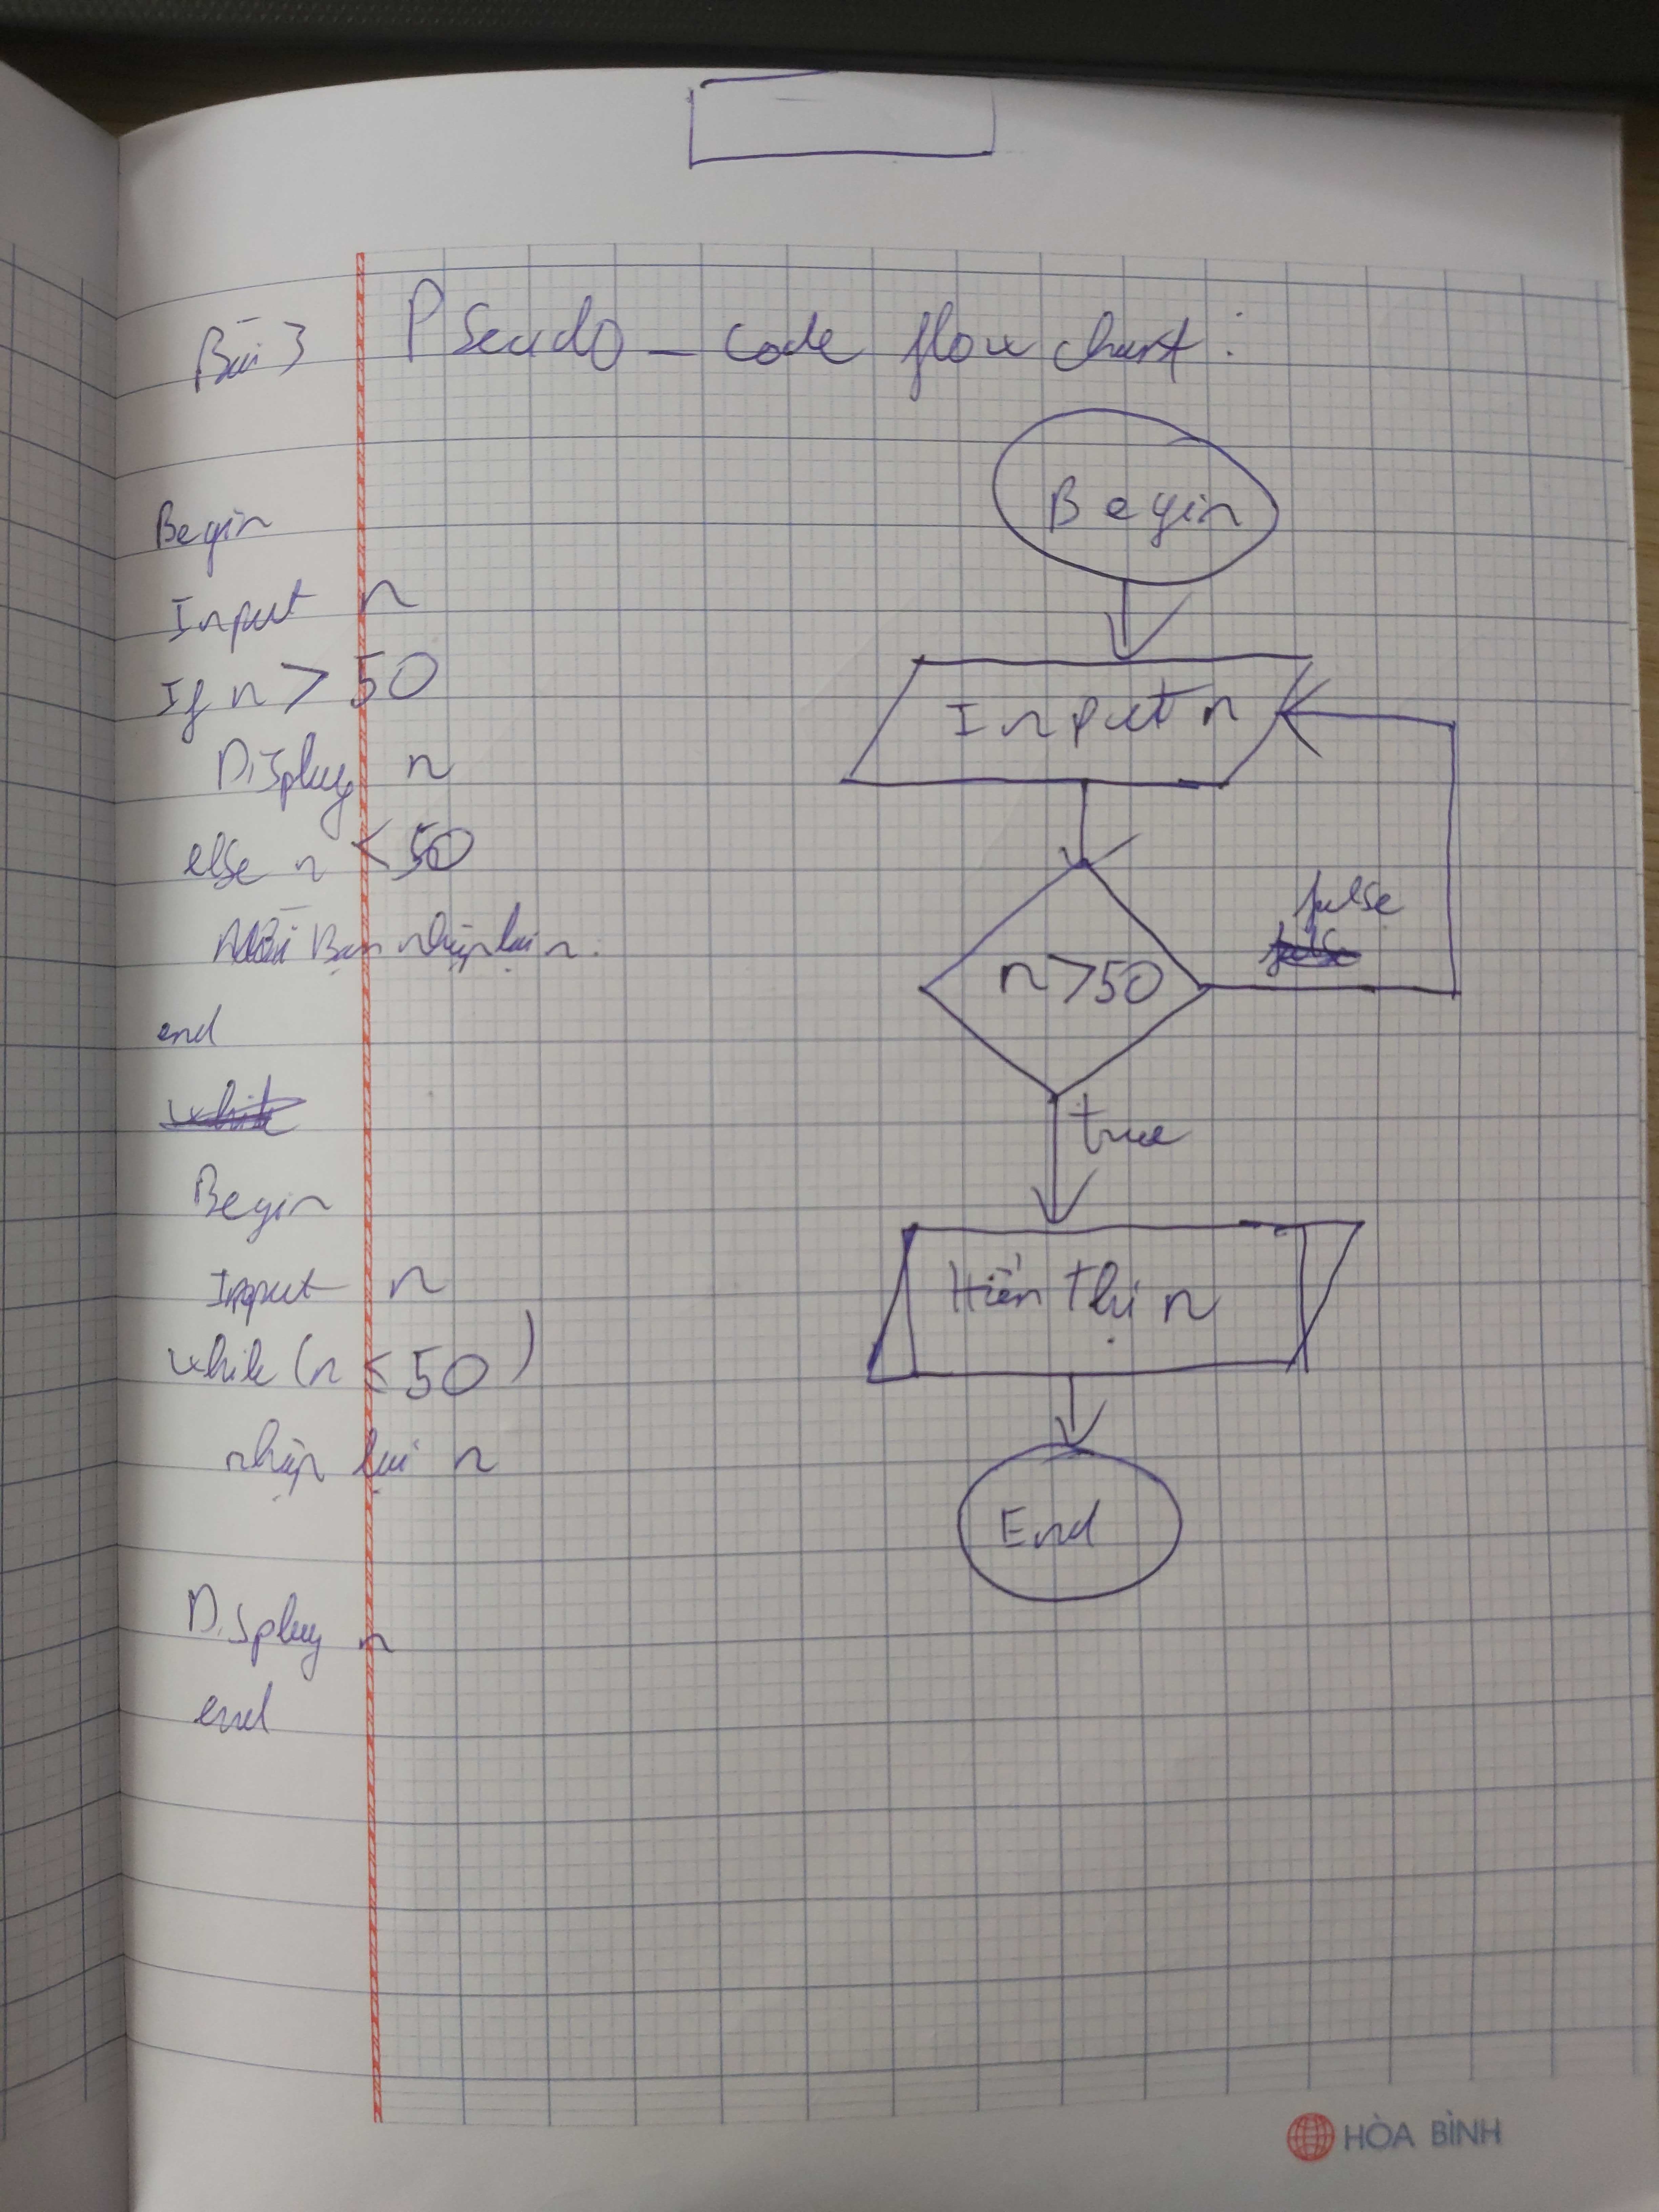 Bài 3
Pseudo_code flow chart:
Begin
Input n
If n > 50
Display n
else n < 50
Mời Bạn nhập lại n.
end
while
Begin
Input n
while (n < 50)
nhập lại n
Display n
end
Begin
Input n
n > 50
false
false
true
Hiển thị n
End
HÒA BÌNH